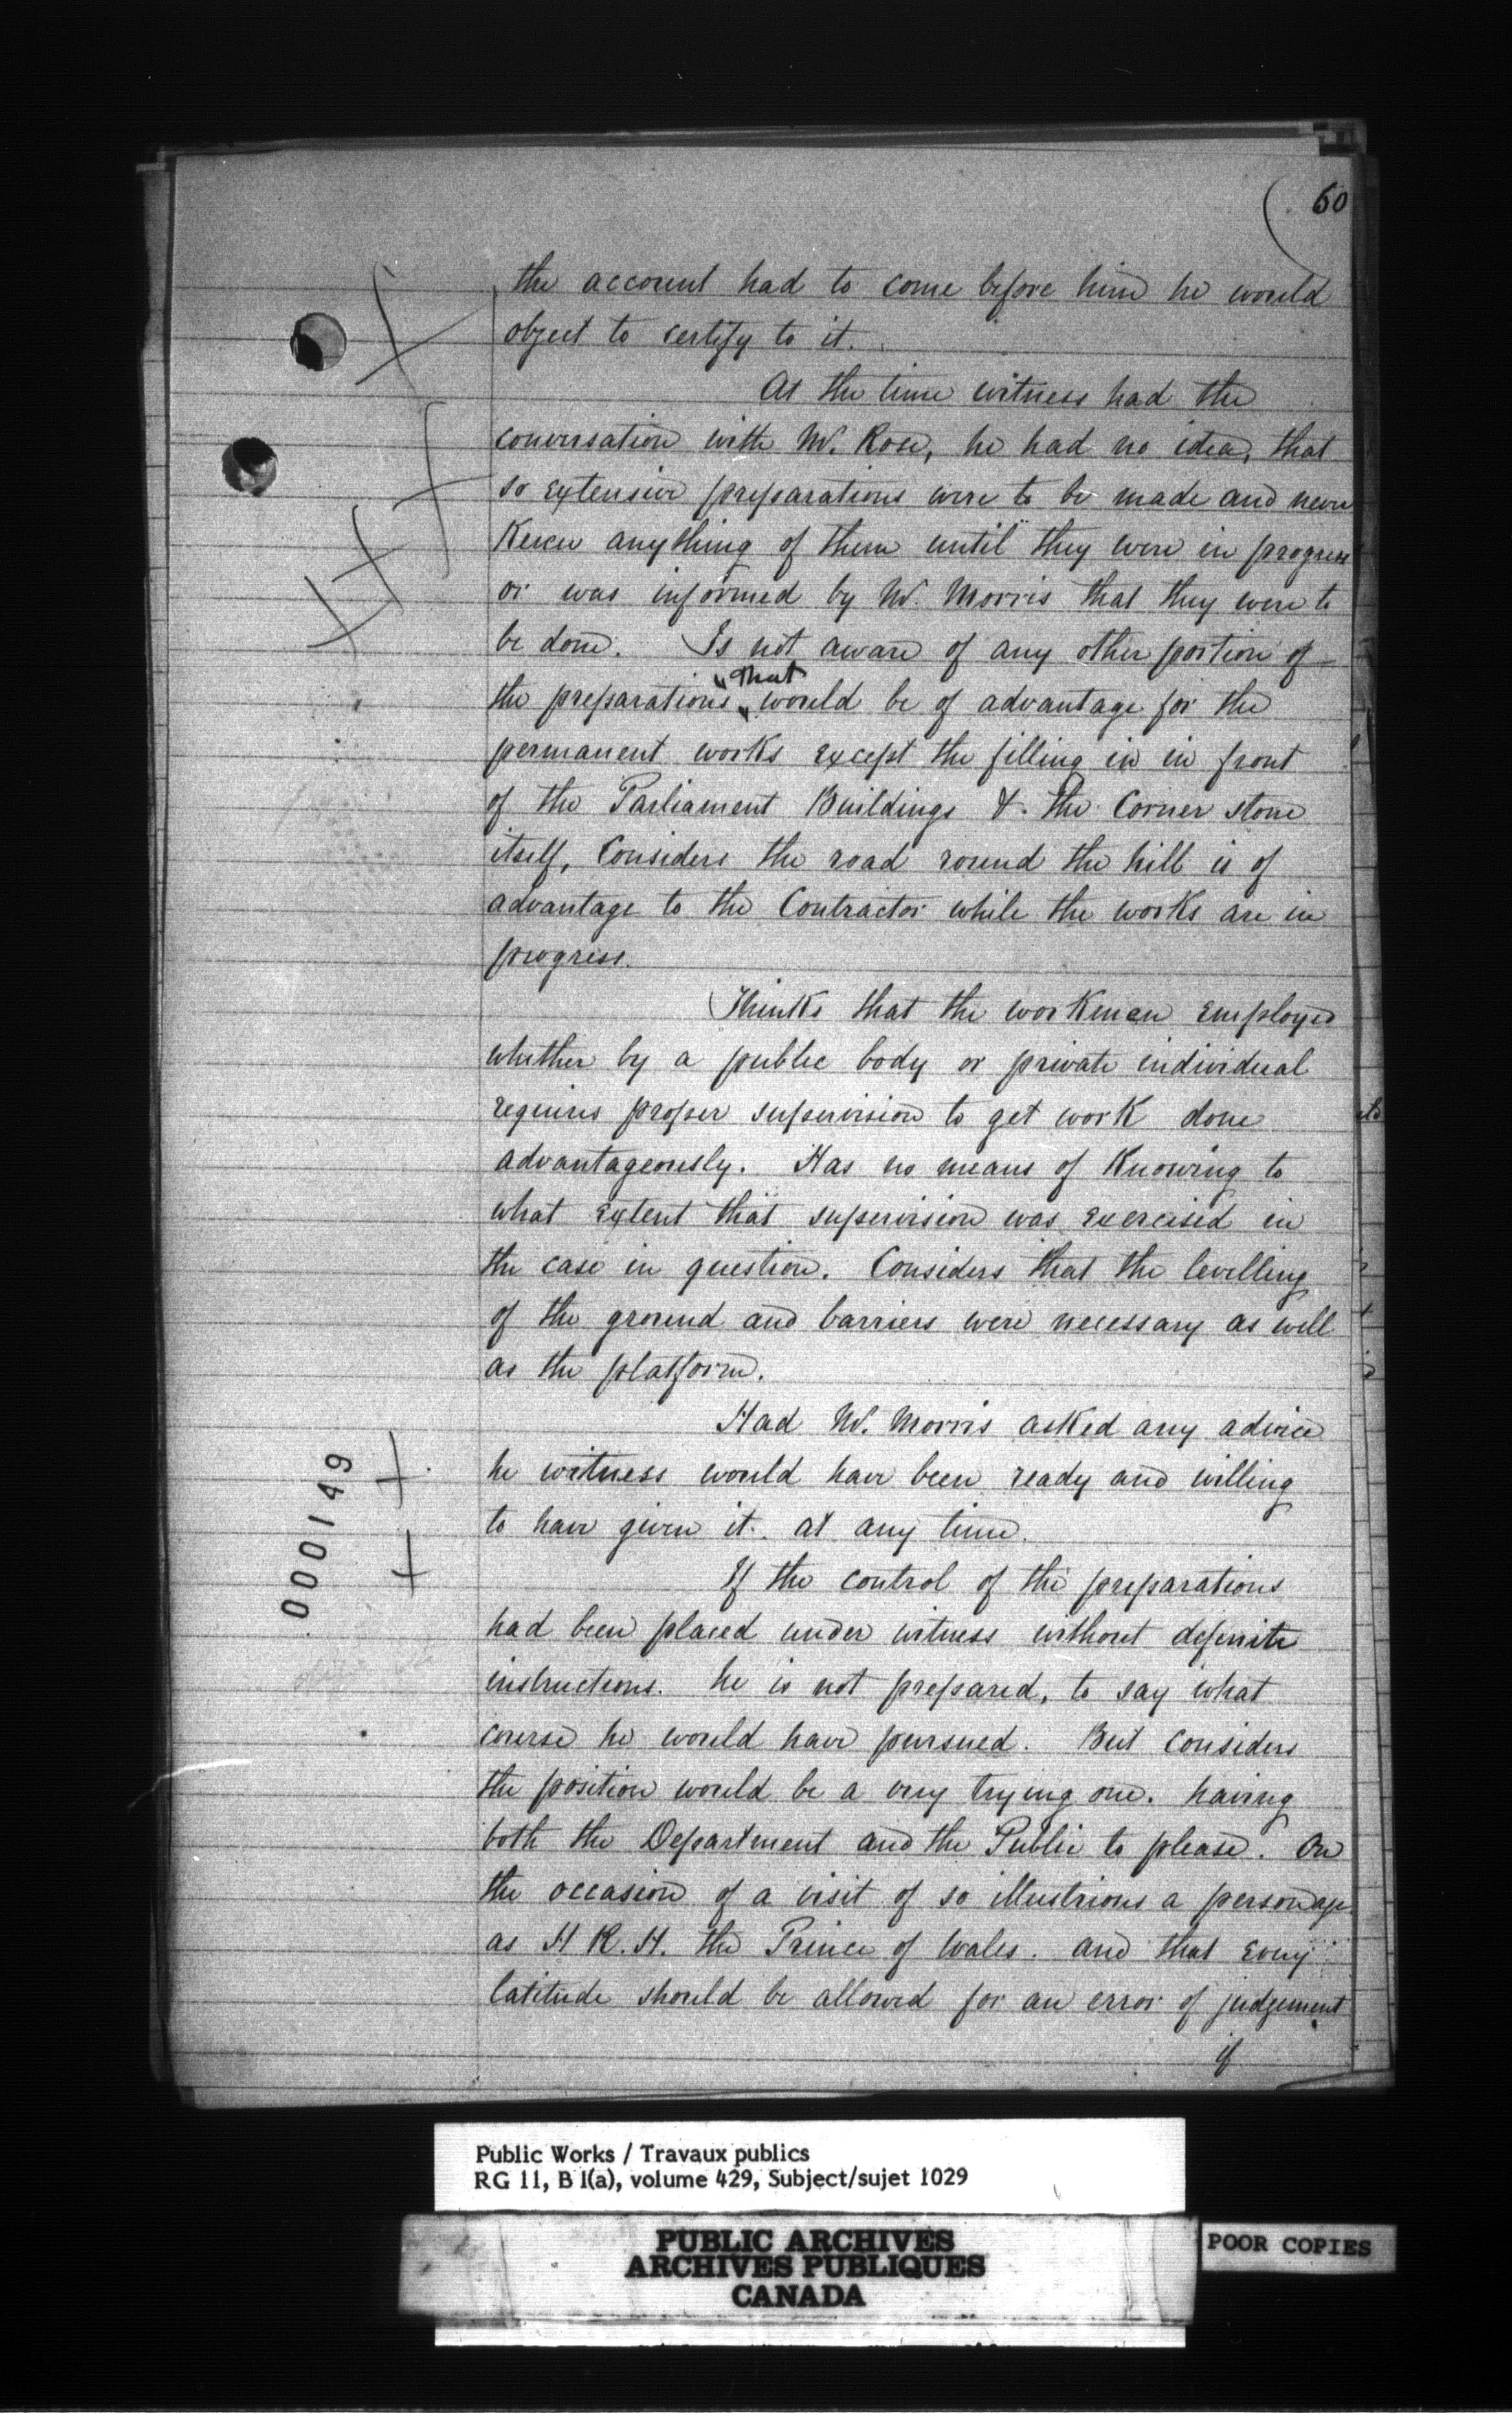 60
the account had to come before him he would
object to certify to it.
At the time witness had the
conversation with Mr. Rose, he had no idea, that
so extensive preparations were to be made and never
Knew anything of them until they were in progress
or was informed by Mr. Morris that they were to
be done. Is not aware of any other portion of
that
the preparations would be of advantage for the
permanent works except the filling in in front
of the Parliament Buildings & the Corner stone
itself, Considers the road round the hill is of
advantage to the Contractor while the works are in
progress.
Thinks that the workmen employed
whether by a public body or private individual
requires proper supervision to get work done
advantageously. Has no means of Knowing to
what extent that supervision was exercised in
the case in question. Considers that the levelling
of the ground and barriers were necessary as well
as the platform.
Had Mr. Morris asked any advice
he witness would have been ready and willing
to have given it. at any time.
If the control of the preparations
had been placed under witness without definite
instructions. he is not prepared, to say what
course he would have pursued. But considers
the position would be a very trying one. having
both the Department and the Public to please. On
the occasion of a visit of so illustrious a personage
as H R. H. the Prince of Wales. and that every
latitude should be allowed for an error of judgement
if
000149
Public Works / Travaux publics
RG 11, B 1(a), volume 429, Subject/sujet 1029
PUBLIC ARCHIVES
ARCHIVES PUBLIQUES
CANADA
POOR COPIES